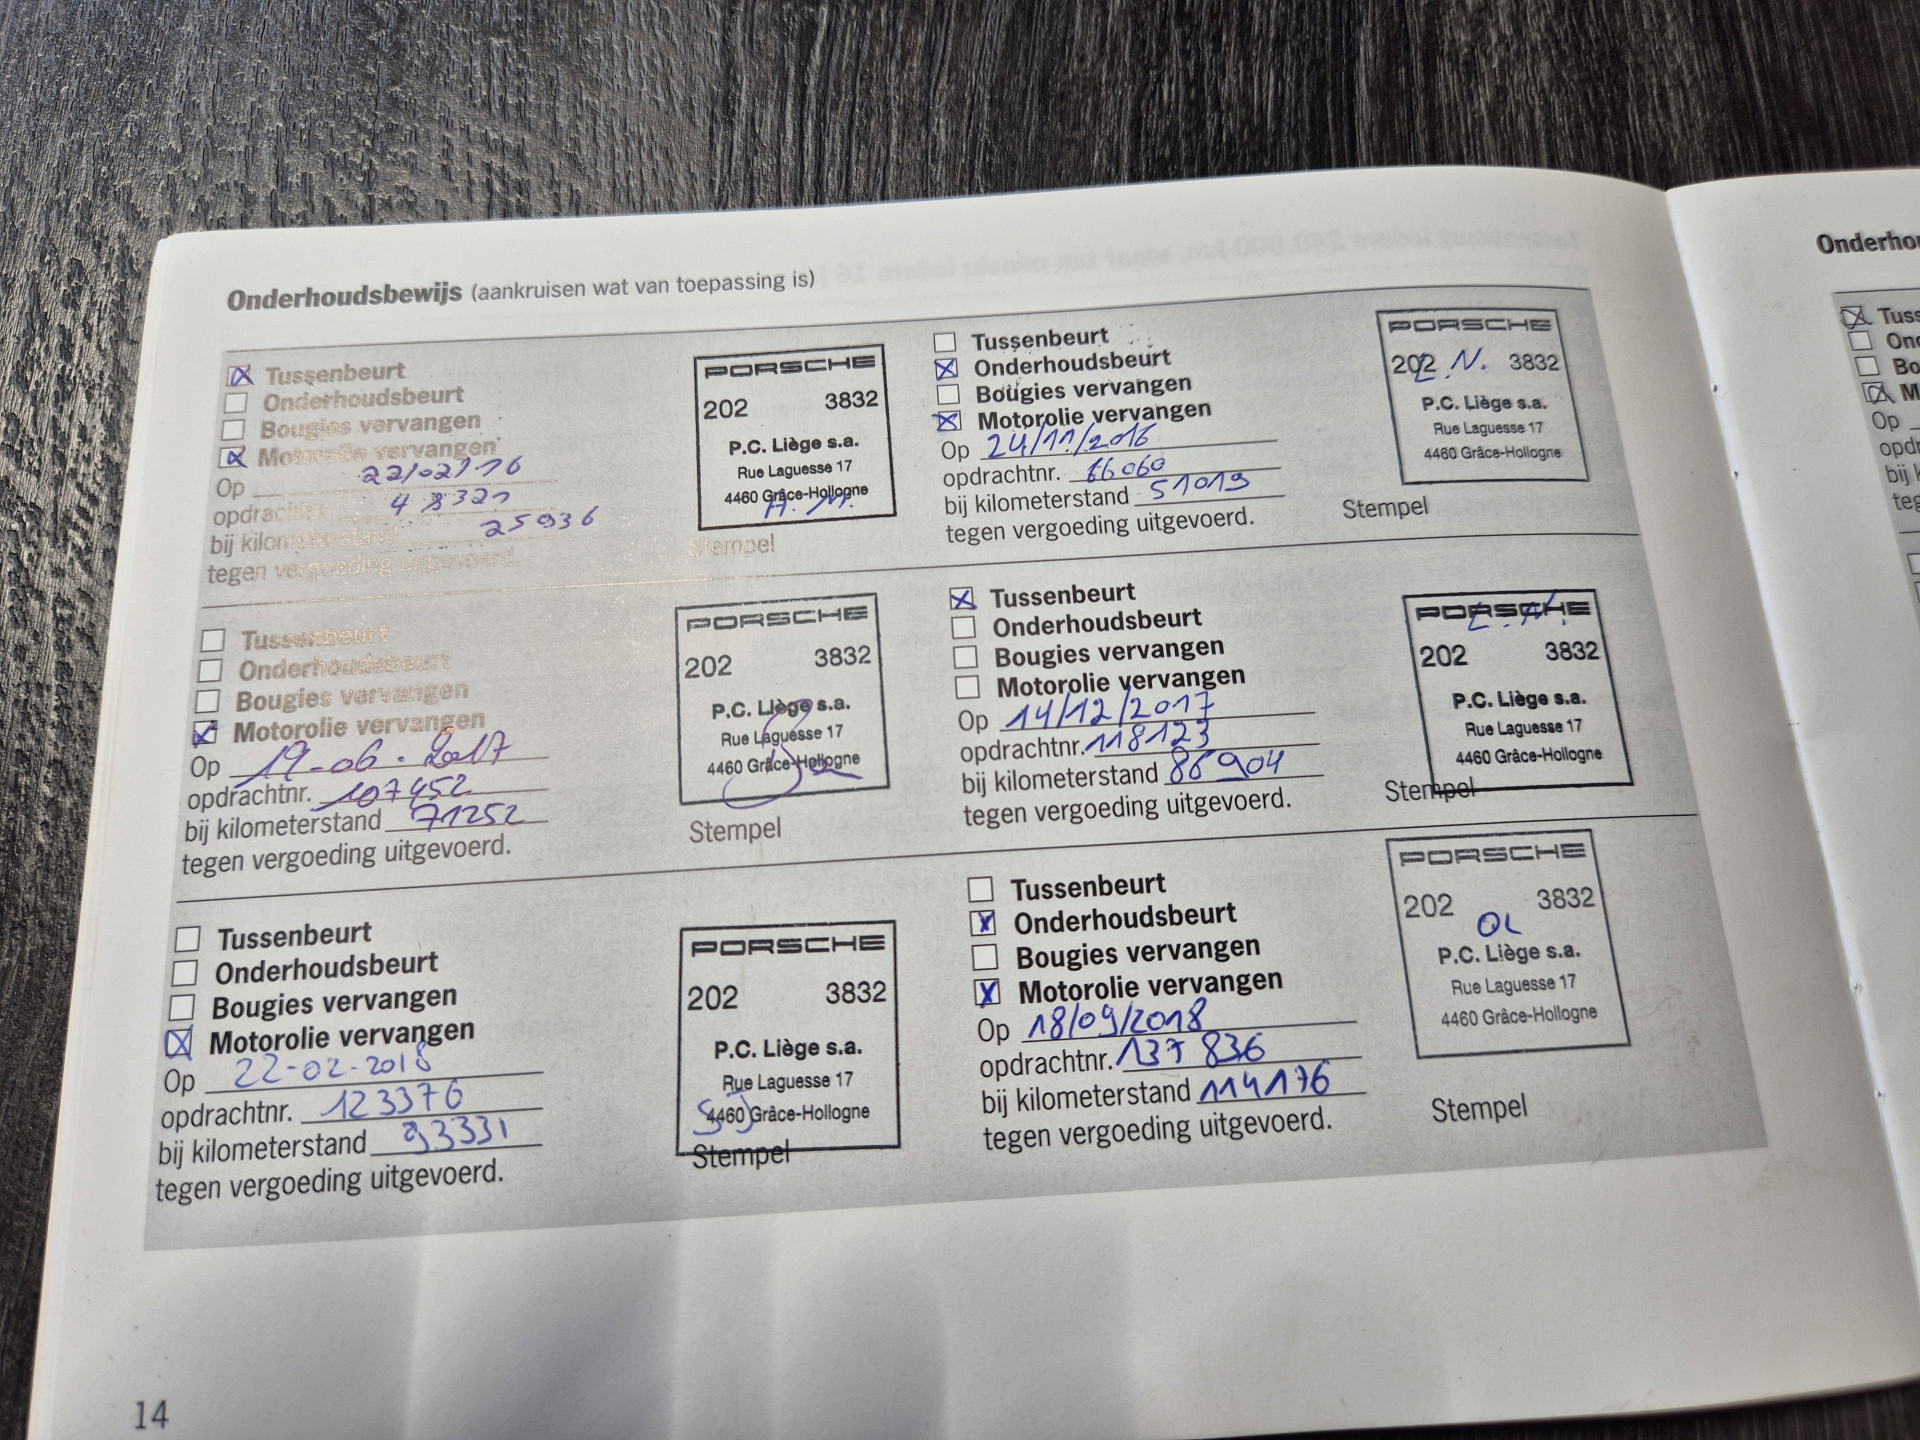 Onderhoudsbewijs (aankruisen wat van toepassing is)
Tussenbeurt
Onderhoudsbeurt
Bougies vervangen
Motorolie vervangen
Op 22/02/16
opdrachtnr.
bij kilometerstand 25936
tegen vergoeding uitgevoerd.
PORSCHE
202 3832
P.C. Liège s.a.
Rue Laguesse 17
4460 Grâce-Hollogne
A.M.
Stempel
Tussenbeurt
Onderhoudsbeurt
Bougies vervangen
Motorolie vervangen
Op 24/11/2016
opdrachtnr. 66060
bij kilometerstand 51019
tegen vergoeding uitgevoerd.
PORSCHE
202 3832
P.C. Liège s.a.
Rue Laguesse 17
4460 Grâce-Hollogne
Stempel
Tussenbeurt
Onderhoudsbeurt
Bougies vervangen
Motorolie vervangen
Op 19-06-2017
opdrachtnr. 107452
bij kilometerstand 71252
tegen vergoeding uitgevoerd.
PORSCHE
202 3832
P.C. Liège s.a.
Rue Laguesse 17
4460 Grâce-Hollogne
Stempel
Tussenbeurt
Onderhoudsbeurt
Bougies vervangen
Motorolie vervangen
Op 14/12/2017
opdrachtnr. 118123
bij kilometerstand 86904
tegen vergoeding uitgevoerd.
PORSCHE
202 3832
P.C. Liège s.a.
Rue Laguesse 17
4460 Grâce-Hollogne
Stempel
Tussenbeurt
Onderhoudsbeurt
Bougies vervangen
Motorolie vervangen
Op 22-02-2018
opdrachtnr. 123376
bij kilometerstand 93331
tegen vergoeding uitgevoerd.
PORSCHE
202 3832
P.C. Liège s.a.
Rue Laguesse 17
4460 Grâce-Hollogne
Stempel
Tussenbeurt
Onderhoudsbeurt
Bougies vervangen
Motorolie vervangen
Op 18/09/2018
opdrachtnr. 137836
bij kilometerstand 114176
tegen vergoeding uitgevoerd.
PORSCHE
202 3832
OL
P.C. Liège s.a.
Rue Laguesse 17
4460 Grâce-Hollogne
Stempel
14